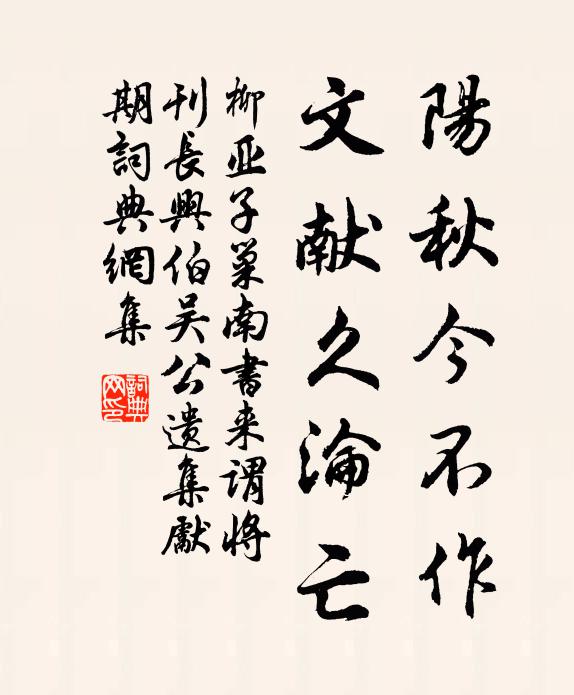 陽秋今不作
文献久淪亡
柳亚子巢南書来謂將
刊長興伯吴公遗集獻
期詞典網集
詞典网印